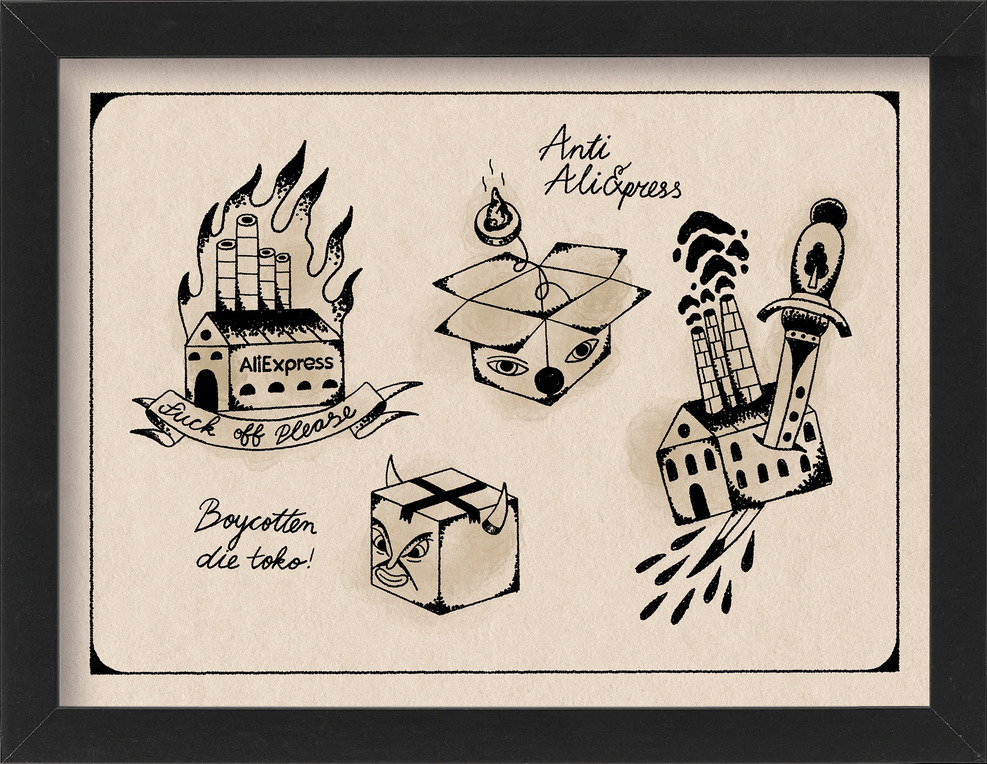 Anti
AliExpress
AliExpress
Fuck off Please
Boycotten
die toko!